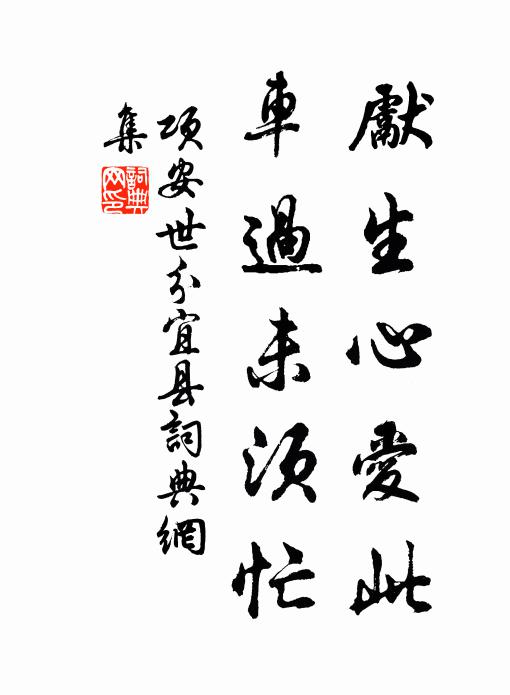 獻生心愛此
車過未須忙
項安世分宜县詞典網
集
詞典网印